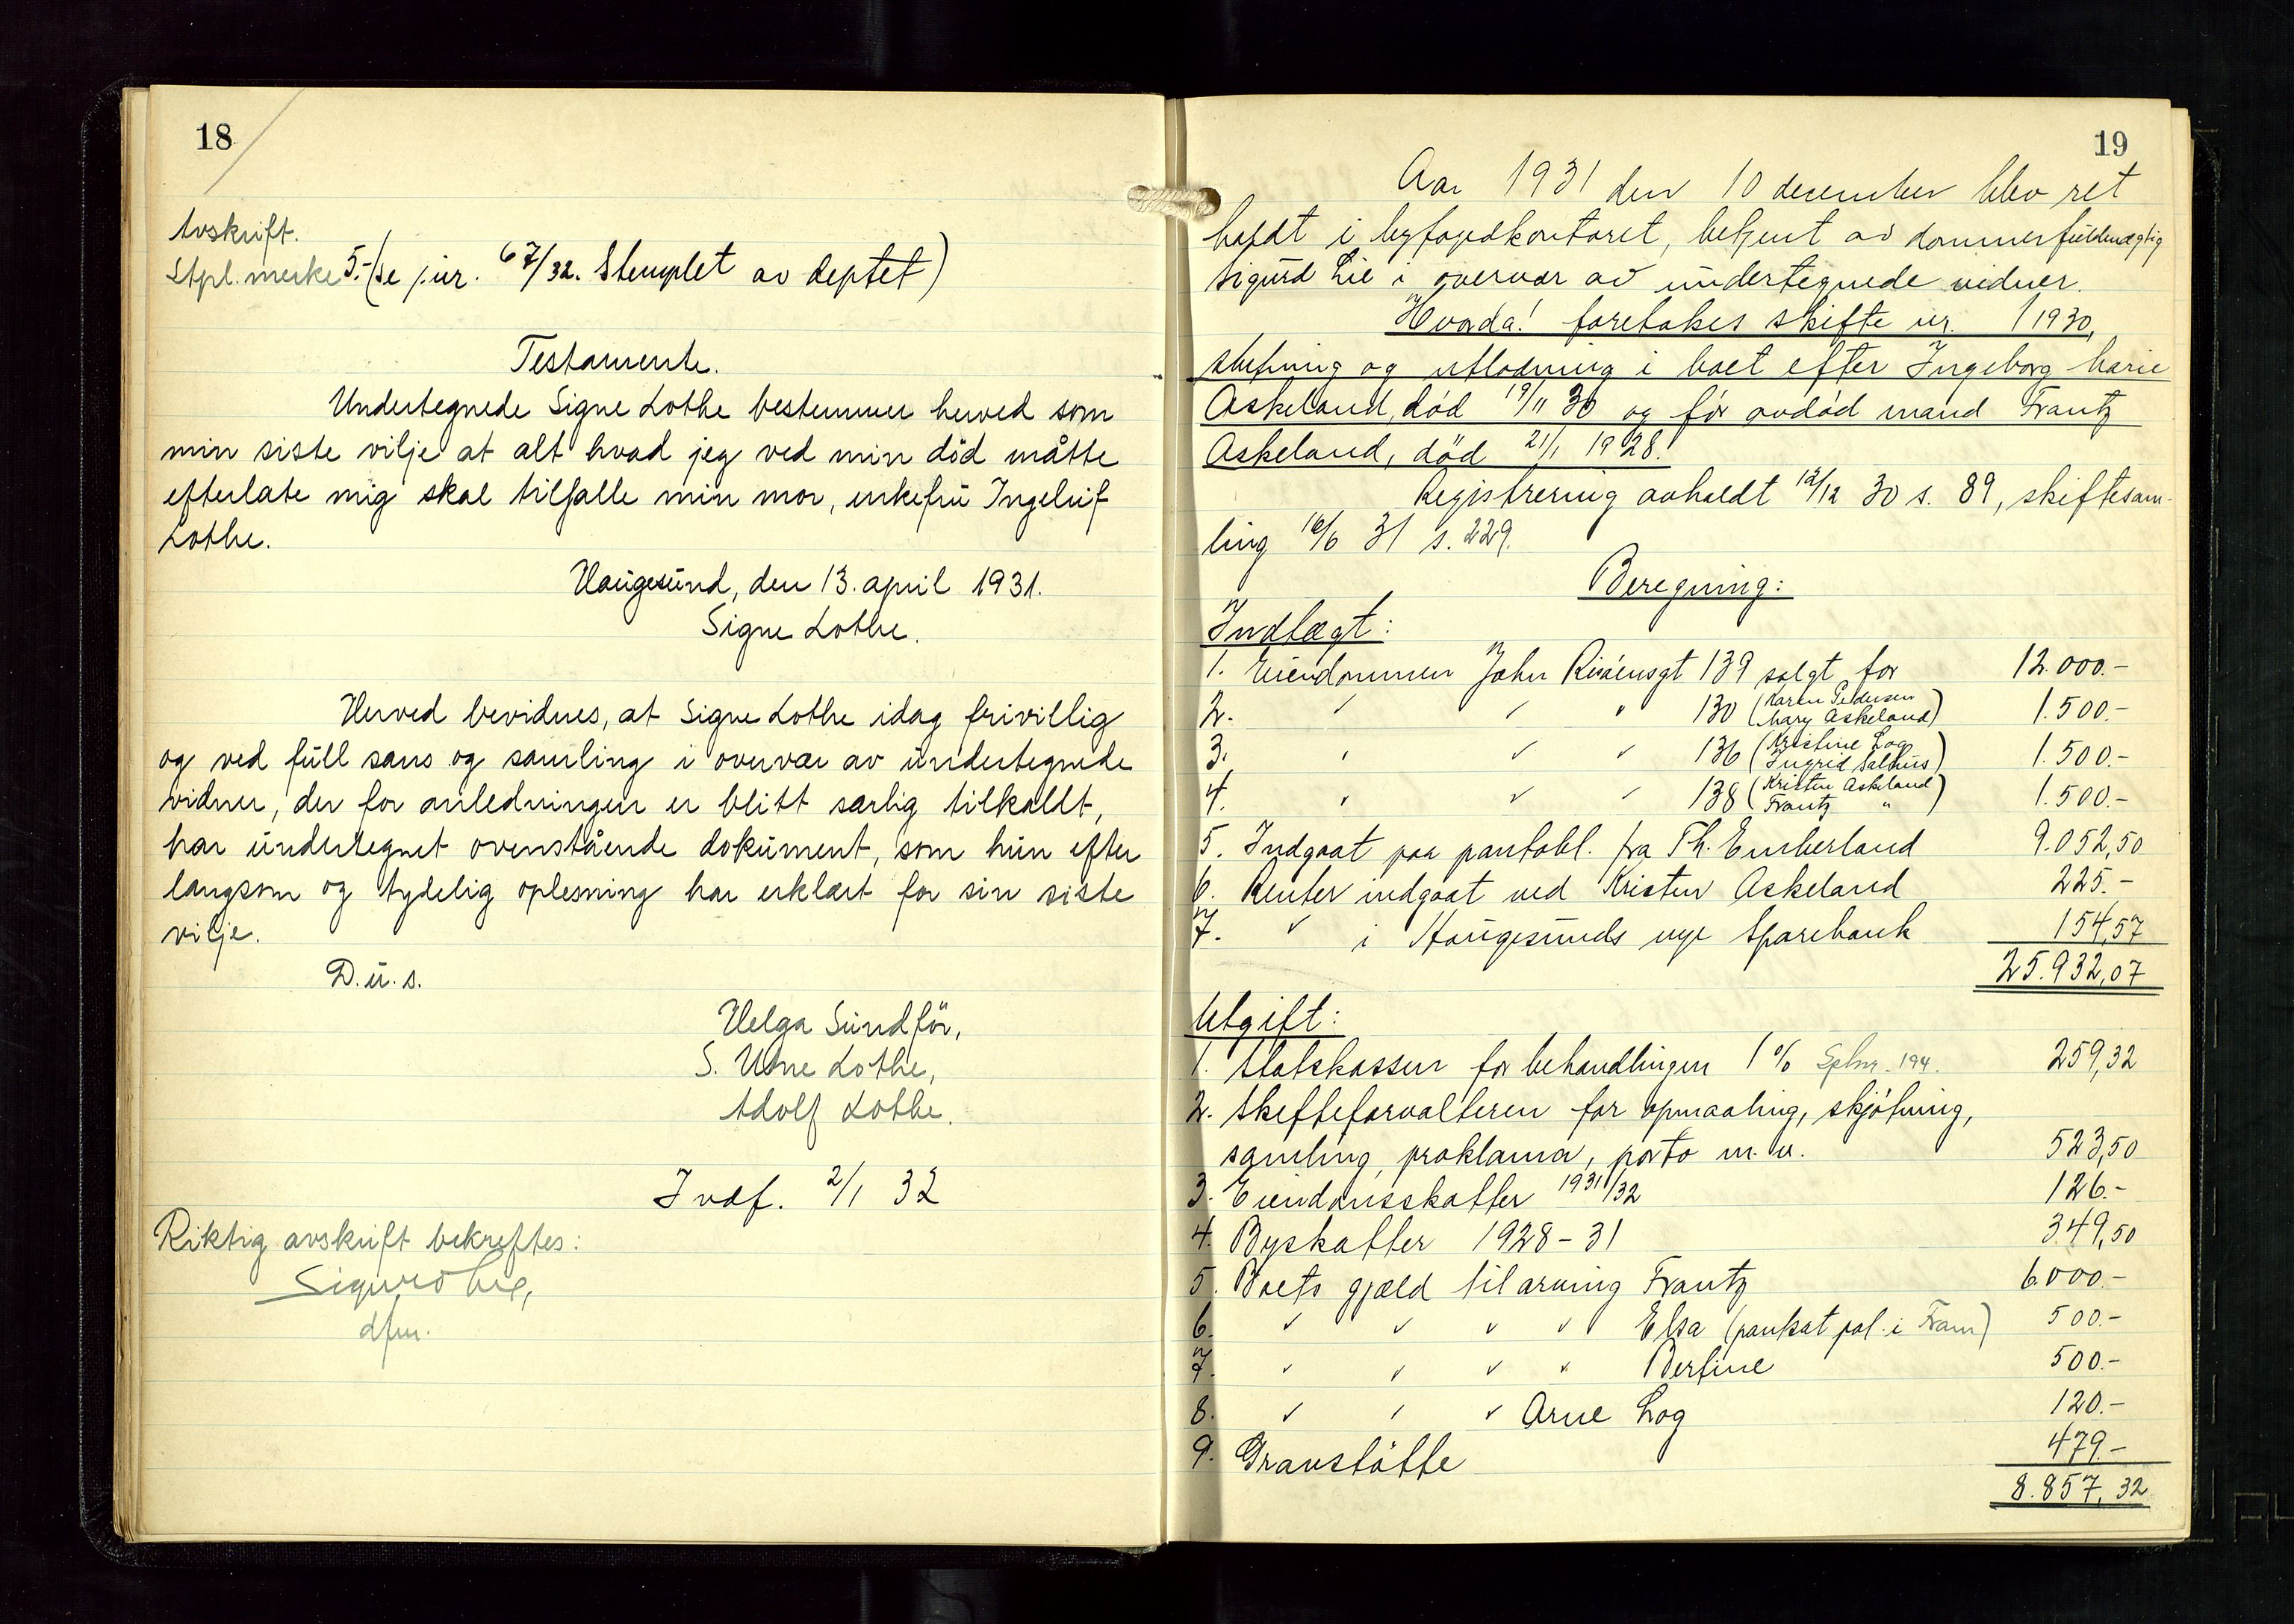 18
Avskrift.
Stpl. merke 5.- (se j.nr. 67/32. Stemplet av deptet)
Testamente.
Undertegnede Signe Lothe bestemmer herved som
min siste vilje at alt hvad jeg ved min död måtte
efterlate mig skal tilfalle min mor, enkefru Ingeleif
Lothe.
Haugesund, den 13. april 1931.
Signe Lothe.
Herved bevidnes, at Signe Lothe idag frivillig
og ved full sans og samling i overvær av undertegnede
vidner, der for anledningen er blitt særlig tilkallt,
har undertegnet ovenstående dokument, som hun efter
langsom og tydelig oplesning har erklært for sin siste
vilje.
D.u.s.
Helga Sundför,
S. Une Lothe,
Adolf Lothe.
Indf. 2/1 32
Riktig avskrift bekreftes:
Sigurd Lie,
dfm.
19
Aar 1931 den 10 december blev ret
holdt i byfogedkontoret, betjent av dommerfuldmægtig
Sigurd Lie i overvær av undertegnede vidner.
Hvorda! foretokes skifte nr. / 1930,
slutning og utlodning i boet efter Ingeborg Marie
Askeland, død 19/11 30 og før avdød mand Frantz
Askeland, død 21/1 1928!
Registrering avholdt 12/12 30 s. 89, skiftesam-
ling 16/6 31 s. 229.
Beregning:
Indlægt:
1. Eiendommen John Risøensgt 139 solgt for 12.000.-
2. " " " 130 (Karen Pedersen Mary Askeland) 1.500.-
3. " " " 136 (Kristine Log Ingrid Salhus) 1.500.-
4. " " " 138 (Kristen Askeland Frantz ") 1.500.-
5. Indgaat paa pantobl. fra Th. Emberland 9.052,50
6. Renter indgaat ved Kristen Askeland 225.-
7. " i Haugesunds nye Sparebank 154,57
25.932,07
Utgift:
1. Statskassen for behandlingen 1 % Spbnr. 194. 259,32
2. Skifteforvalteren for opmaaling, skjøtning,
samling, proklama, porto m.v. 523,50
3. Eiendomsskatter 1931/32 126.-
4. Byskatter 1928-31 349,50
5. Boets gjæld til arving Frantz 6.000.-
6. " " " " Elsa (pantsat pol. i Fram) 500.-
7. " " " " Bertine 500.-
8. " " " Arne Log 120.-
9. Gravstøtte 479.-
8.857,32